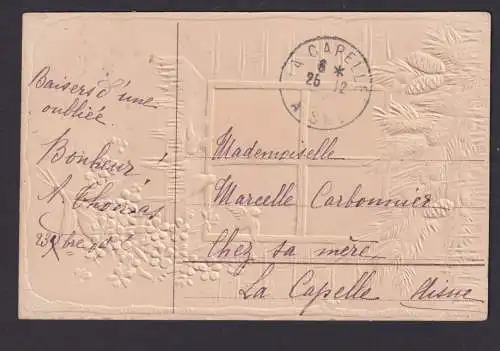 Baisers d'une
oubliée
Bonheur!
A. Thomas
LA CAPELLE
6 *
25 12
AISNE
Mademoiselle
Marcelle Carbonnier
Chez sa mère
La Capelle Aisne